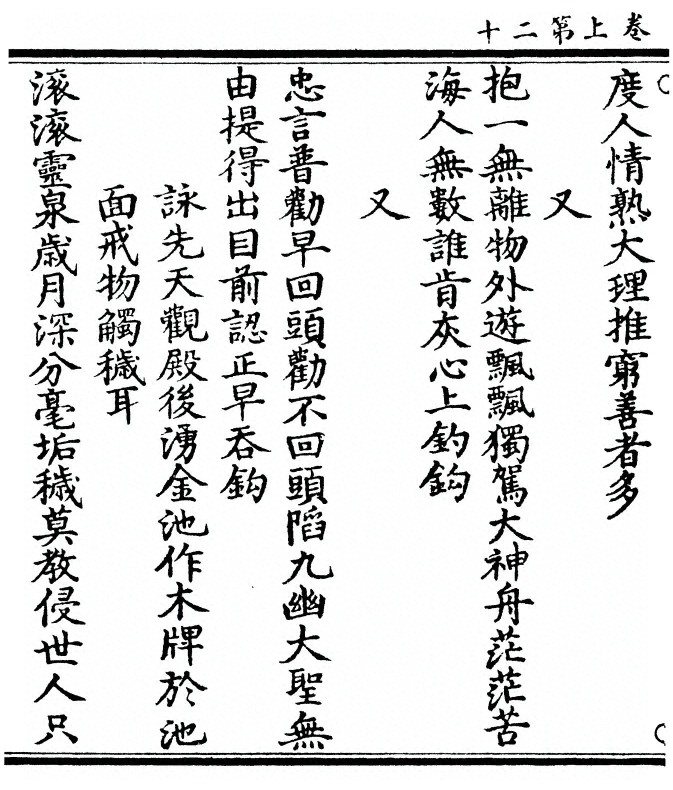 卷上第二十
度人情熟大理推窮善者多
又
抱一無離物外遊飄飄獨駕大神舟茫茫苦
海人無數誰肯灰心上釣鈎
又
忠言普勸早回頭勸不回頭陷九幽大聖無
由提得出目前認正早吞鈎
詠先天觀殿後湧金池作木牌於池
面戒物觸穢耳
滾滾靈泉歲月深分毫垢穢莫教侵世人只